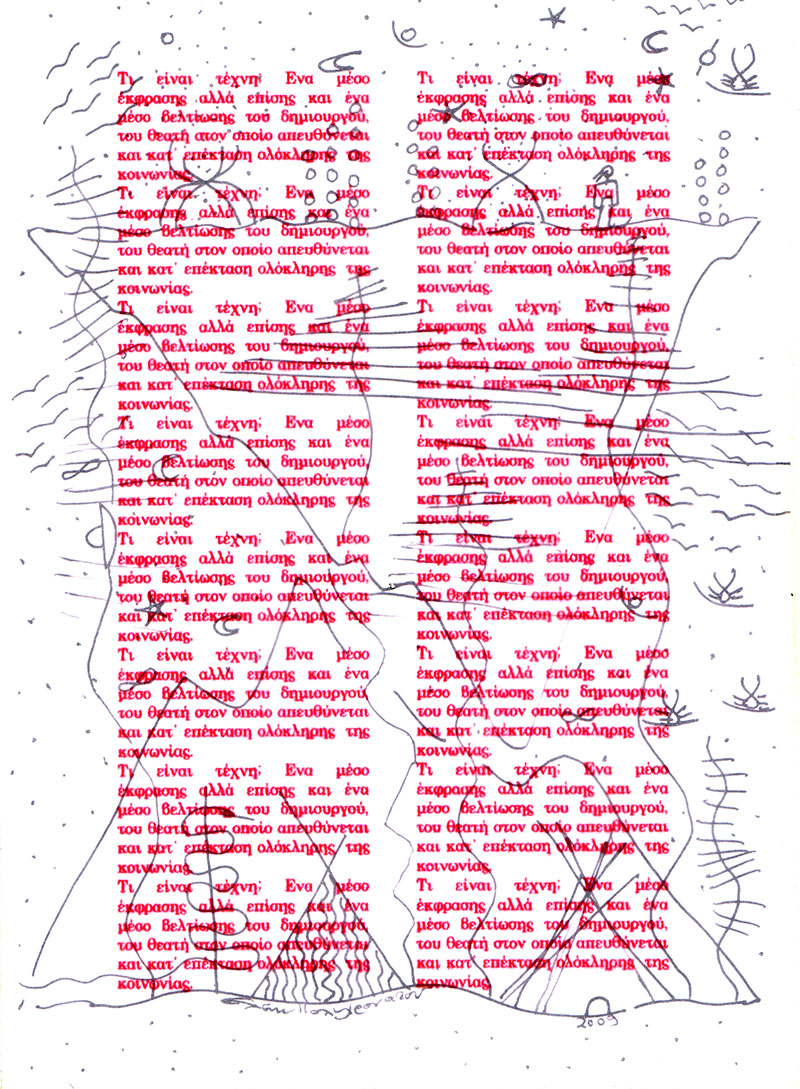 Τι είναι τέχνη; Ενα μέσο
έκφρασης αλλά επίσης και ένα
μέσο βελτίωσης του δημιουργού,
του θεατή στον οποίο απευθύνεται
και κατ' επέκταση ολόκληρης της
κοινωνίας.
Τι είναι τέχνη; Ενα μέσο
έκφρασης αλλά επίσης και ένα
μέσο βελτίωσης του δημιουργού,
του θεατή στον οποίο απευθύνεται
και κατ' επέκταση ολόκληρης της
κοινωνίας.
Τι είναι τέχνη; Ενα μέσο
έκφρασης αλλά επίσης και ένα
μέσο βελτίωσης του δημιουργού,
του θεατή στον οποίο απευθύνεται
και κατ' επέκταση ολόκληρης της
κοινωνίας.
Τι είναι τέχνη; Ενα μέσο
έκφρασης αλλά επίσης και ένα
μέσο βελτίωσης του δημιουργού,
του θεατή στον οποίο απευθύνεται
και κατ' επέκταση ολόκληρης της
κοινωνίας.
Τι είναι τέχνη; Ενα μέσο
έκφρασης αλλά επίσης και ένα
μέσο βελτίωσης του δημιουργού,
του θεατή στον οποίο απευθύνεται
και κατ' επέκταση ολόκληρης της
κοινωνίας.
Τι είναι τέχνη; Ενα μέσο
έκφρασης αλλά επίσης και ένα
μέσο βελτίωσης του δημιουργού,
του θεατή στον οποίο απευθύνεται
και κατ' επέκταση ολόκληρης της
κοινωνίας.
Τι είναι τέχνη; Ενα μέσο
έκφρασης αλλά επίσης και ένα
μέσο βελτίωσης του δημιουργού,
του θεατή στον οποίο απευθύνεται
και κατ' επέκταση ολόκληρης της
κοινωνίας.
Τι είναι τέχνη; Ενα μέσο
έκφρασης αλλά επίσης και ένα
μέσο βελτίωσης του δημιουργού,
του θεατή στον οποίο απευθύνεται
και κατ' επέκταση ολόκληρης της
κοινωνίας.
Τι είναι τέχνη; Ενα μέσο
έκφρασης αλλά επίσης και ένα
μέσο βελτίωσης του δημιουργού,
του θεατή στον οποίο απευθύνεται
και κατ' επέκταση ολόκληρης της
κοινωνίας.
Τι είναι τέχνη; Ενα μέσο
έκφρασης αλλά επίσης και ένα
μέσο βελτίωσης του δημιουργού,
του θεατή στον οποίο απευθύνεται
και κατ' επέκταση ολόκληρης της
κοινωνίας.
Τι είναι τέχνη; Ενα μέσο
έκφρασης αλλά επίσης και ένα
μέσο βελτίωσης του δημιουργού,
του θεατή στον οποίο απευθύνεται
και κατ' επέκταση ολόκληρης της
κοινωνίας.
Τι είναι τέχνη; Ενα μέσο
έκφρασης αλλά επίσης και ένα
μέσο βελτίωσης του δημιουργού,
του θεατή στον οποίο απευθύνεται
και κατ' επέκταση ολόκληρης της
κοινωνίας.
Τι είναι τέχνη; Ενα μέσο
έκφρασης αλλά επίσης και ένα
μέσο βελτίωσης του δημιουργού,
του θεατή στον οποίο απευθύνεται
και κατ' επέκταση ολόκληρης της
κοινωνίας.
Τι είναι τέχνη; Ενα μέσο
έκφρασης αλλά επίσης και ένα
μέσο βελτίωσης του δημιουργού,
του θεατή στον οποίο απευθύνεται
και κατ' επέκταση ολόκληρης της
κοινωνίας.
Τι είναι τέχνη; Ενα μέσο
έκφρασης αλλά επίσης και ένα
μέσο βελτίωσης του δημιουργού,
του θεατή στον οποίο απευθύνεται
και κατ' επέκταση ολόκληρης της
κοινωνίας.
Τι είναι τέχνη; Ενα μέσο
έκφρασης αλλά επίσης και ένα
μέσο βελτίωσης του δημιουργού,
του θεατή στον οποίο απευθύνεται
και κατ' επέκταση ολόκληρης της
κοινωνίας.
2009